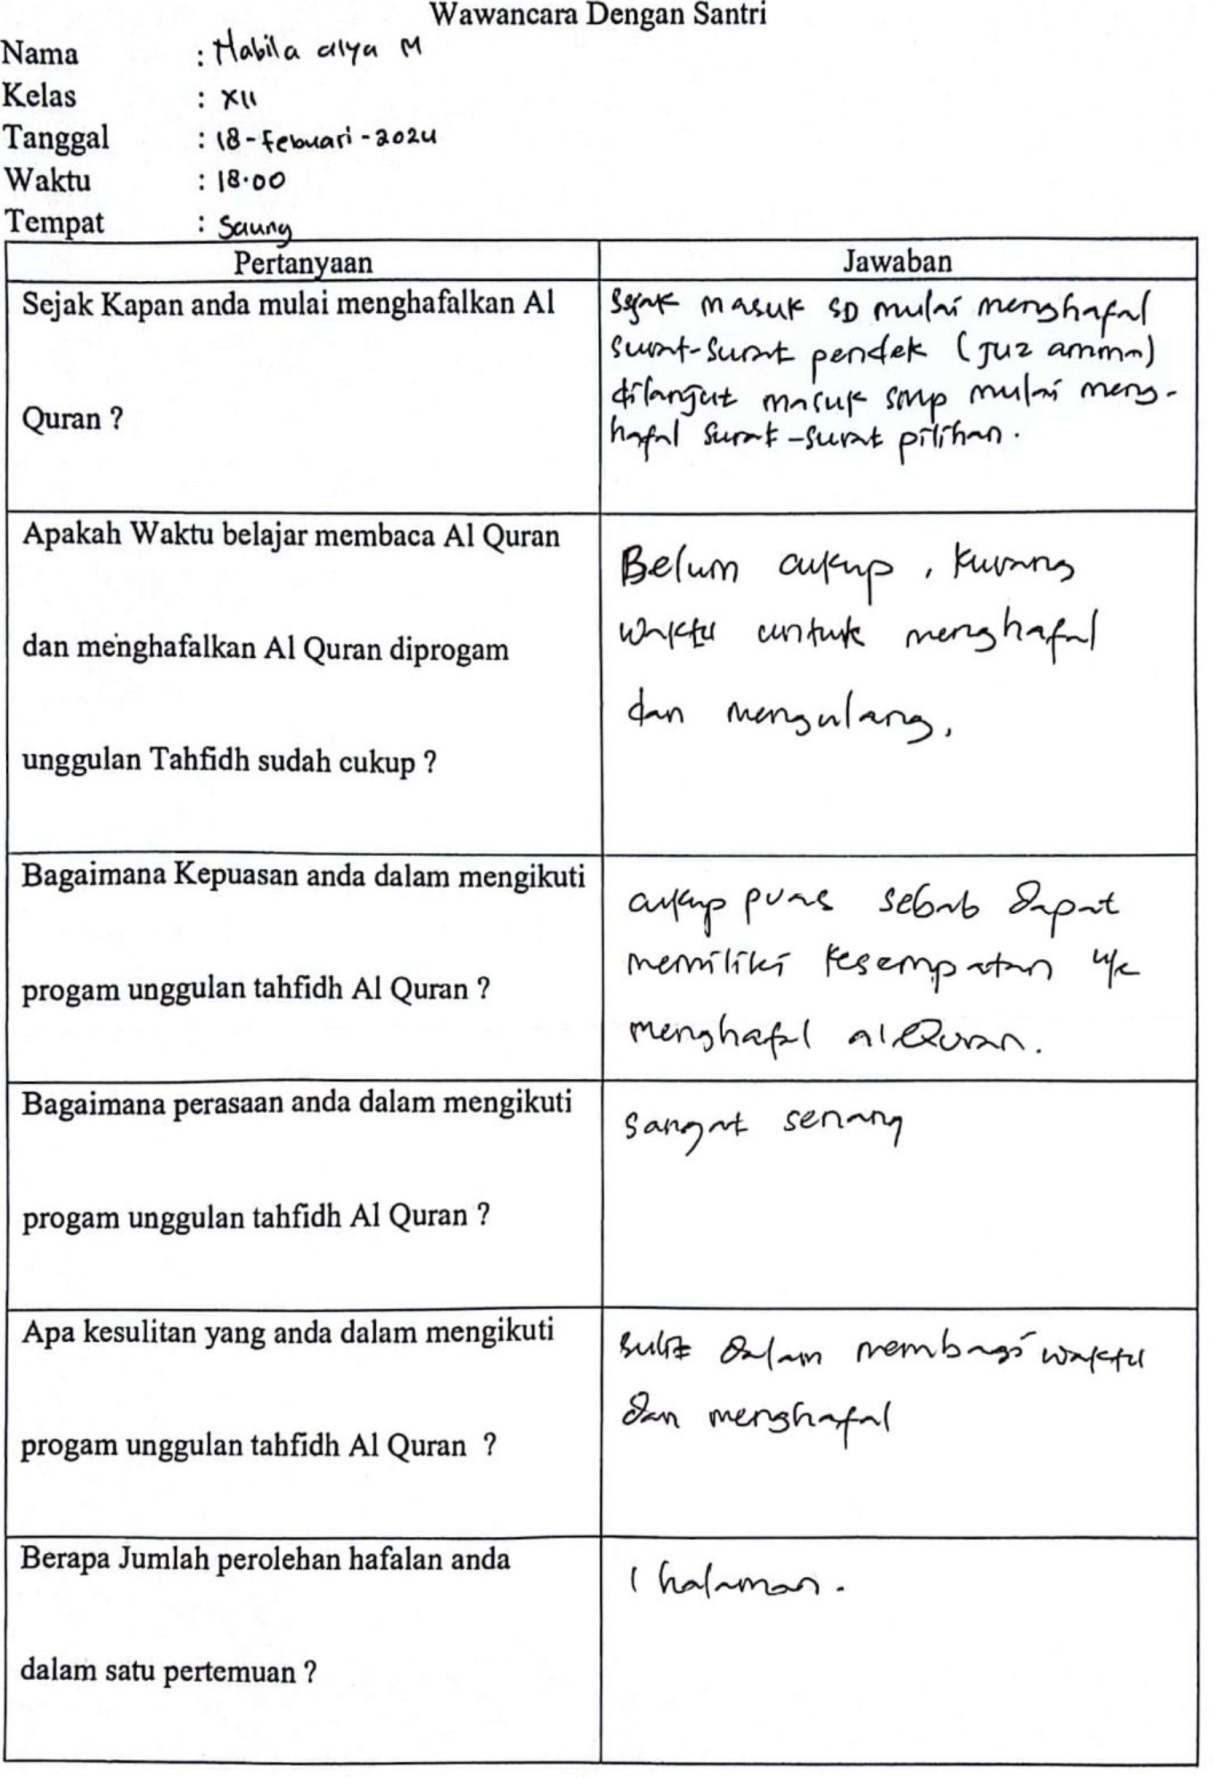 Wawancara Dengan Santri
Nama : Habila alya M
Kelas : XII
Tanggal : 18-Febuari-2024
Waktu : 18.00
Tempat : Saung
Pertanyaan Jawaban
Sejak Kapan anda mulai menghafalkan Al
Quran ?
Sejak masuk SD mulai menghafal
surat-surat pendek (Juz amma)
dilanjut masuk smp mulai meng-
hafal surat-surat pilihan.
Apakah Waktu belajar membaca Al Quran
dan menghafalkan Al Quran diprogam
unggulan Tahfidh sudah cukup ?
Belum cukup, kurang
waktu untuk menghafal
dan mengulang,
Bagaimana Kepuasan anda dalam mengikuti
progam unggulan tahfidh Al Quran ?
cukup puas sebab dapat
memiliki kesempatan u/k
menghafal alQuran.
Bagaimana perasaan anda dalam mengikuti
progam unggulan tahfidh Al Quran ?
Sangat senang
Apa kesulitan yang anda dalam mengikuti
progam unggulan tahfidh Al Quran ?
Sulit dalam membagi waktu
dan menghafal
Berapa Jumlah perolehan hafalan anda
dalam satu pertemuan ?
1 halaman.